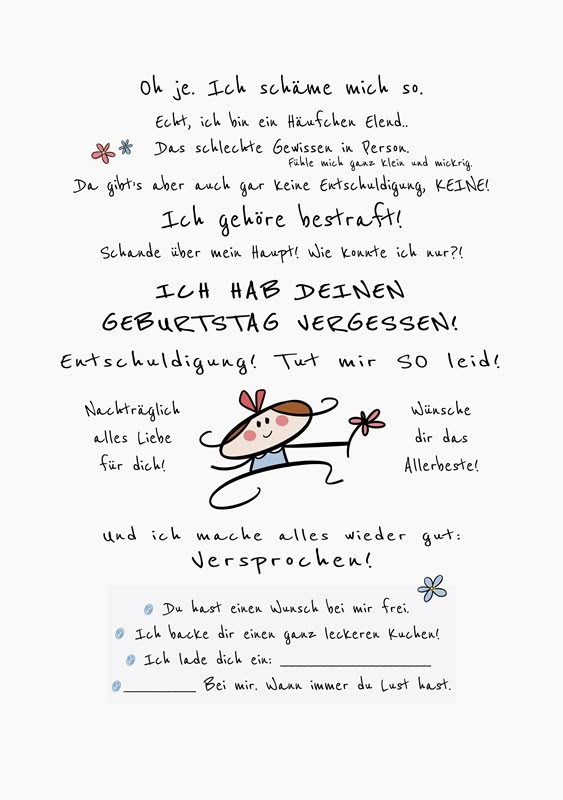 Oh je. Ich schäme mich so.
Echt, ich bin ein Häufchen Elend..
Das schlechte Gewissen in Person.
Fühle mich ganz klein und mickrig.
Da gibt's aber auch gar keine Entschuldigung, KEINE!
Ich gehöre bestraft!
Schande über mein Haupt! Wie konnte ich nur?!
ICH HAB DEINEN
GEBURTSTAG VERGESSEN!
Entschuldigung! Tut mir SO leid!
Nachträglich
alles Liebe
für dich!
Wünsche
dir das
Allerbeste!
Und ich mache alles wieder gut:
Versprochen!
Du hast einen Wunsch bei mir frei.
Ich backe dir einen ganz leckeren Kuchen!
Ich lade dich ein: ____________________
__________ Bei mir. Wann immer du Lust hast.